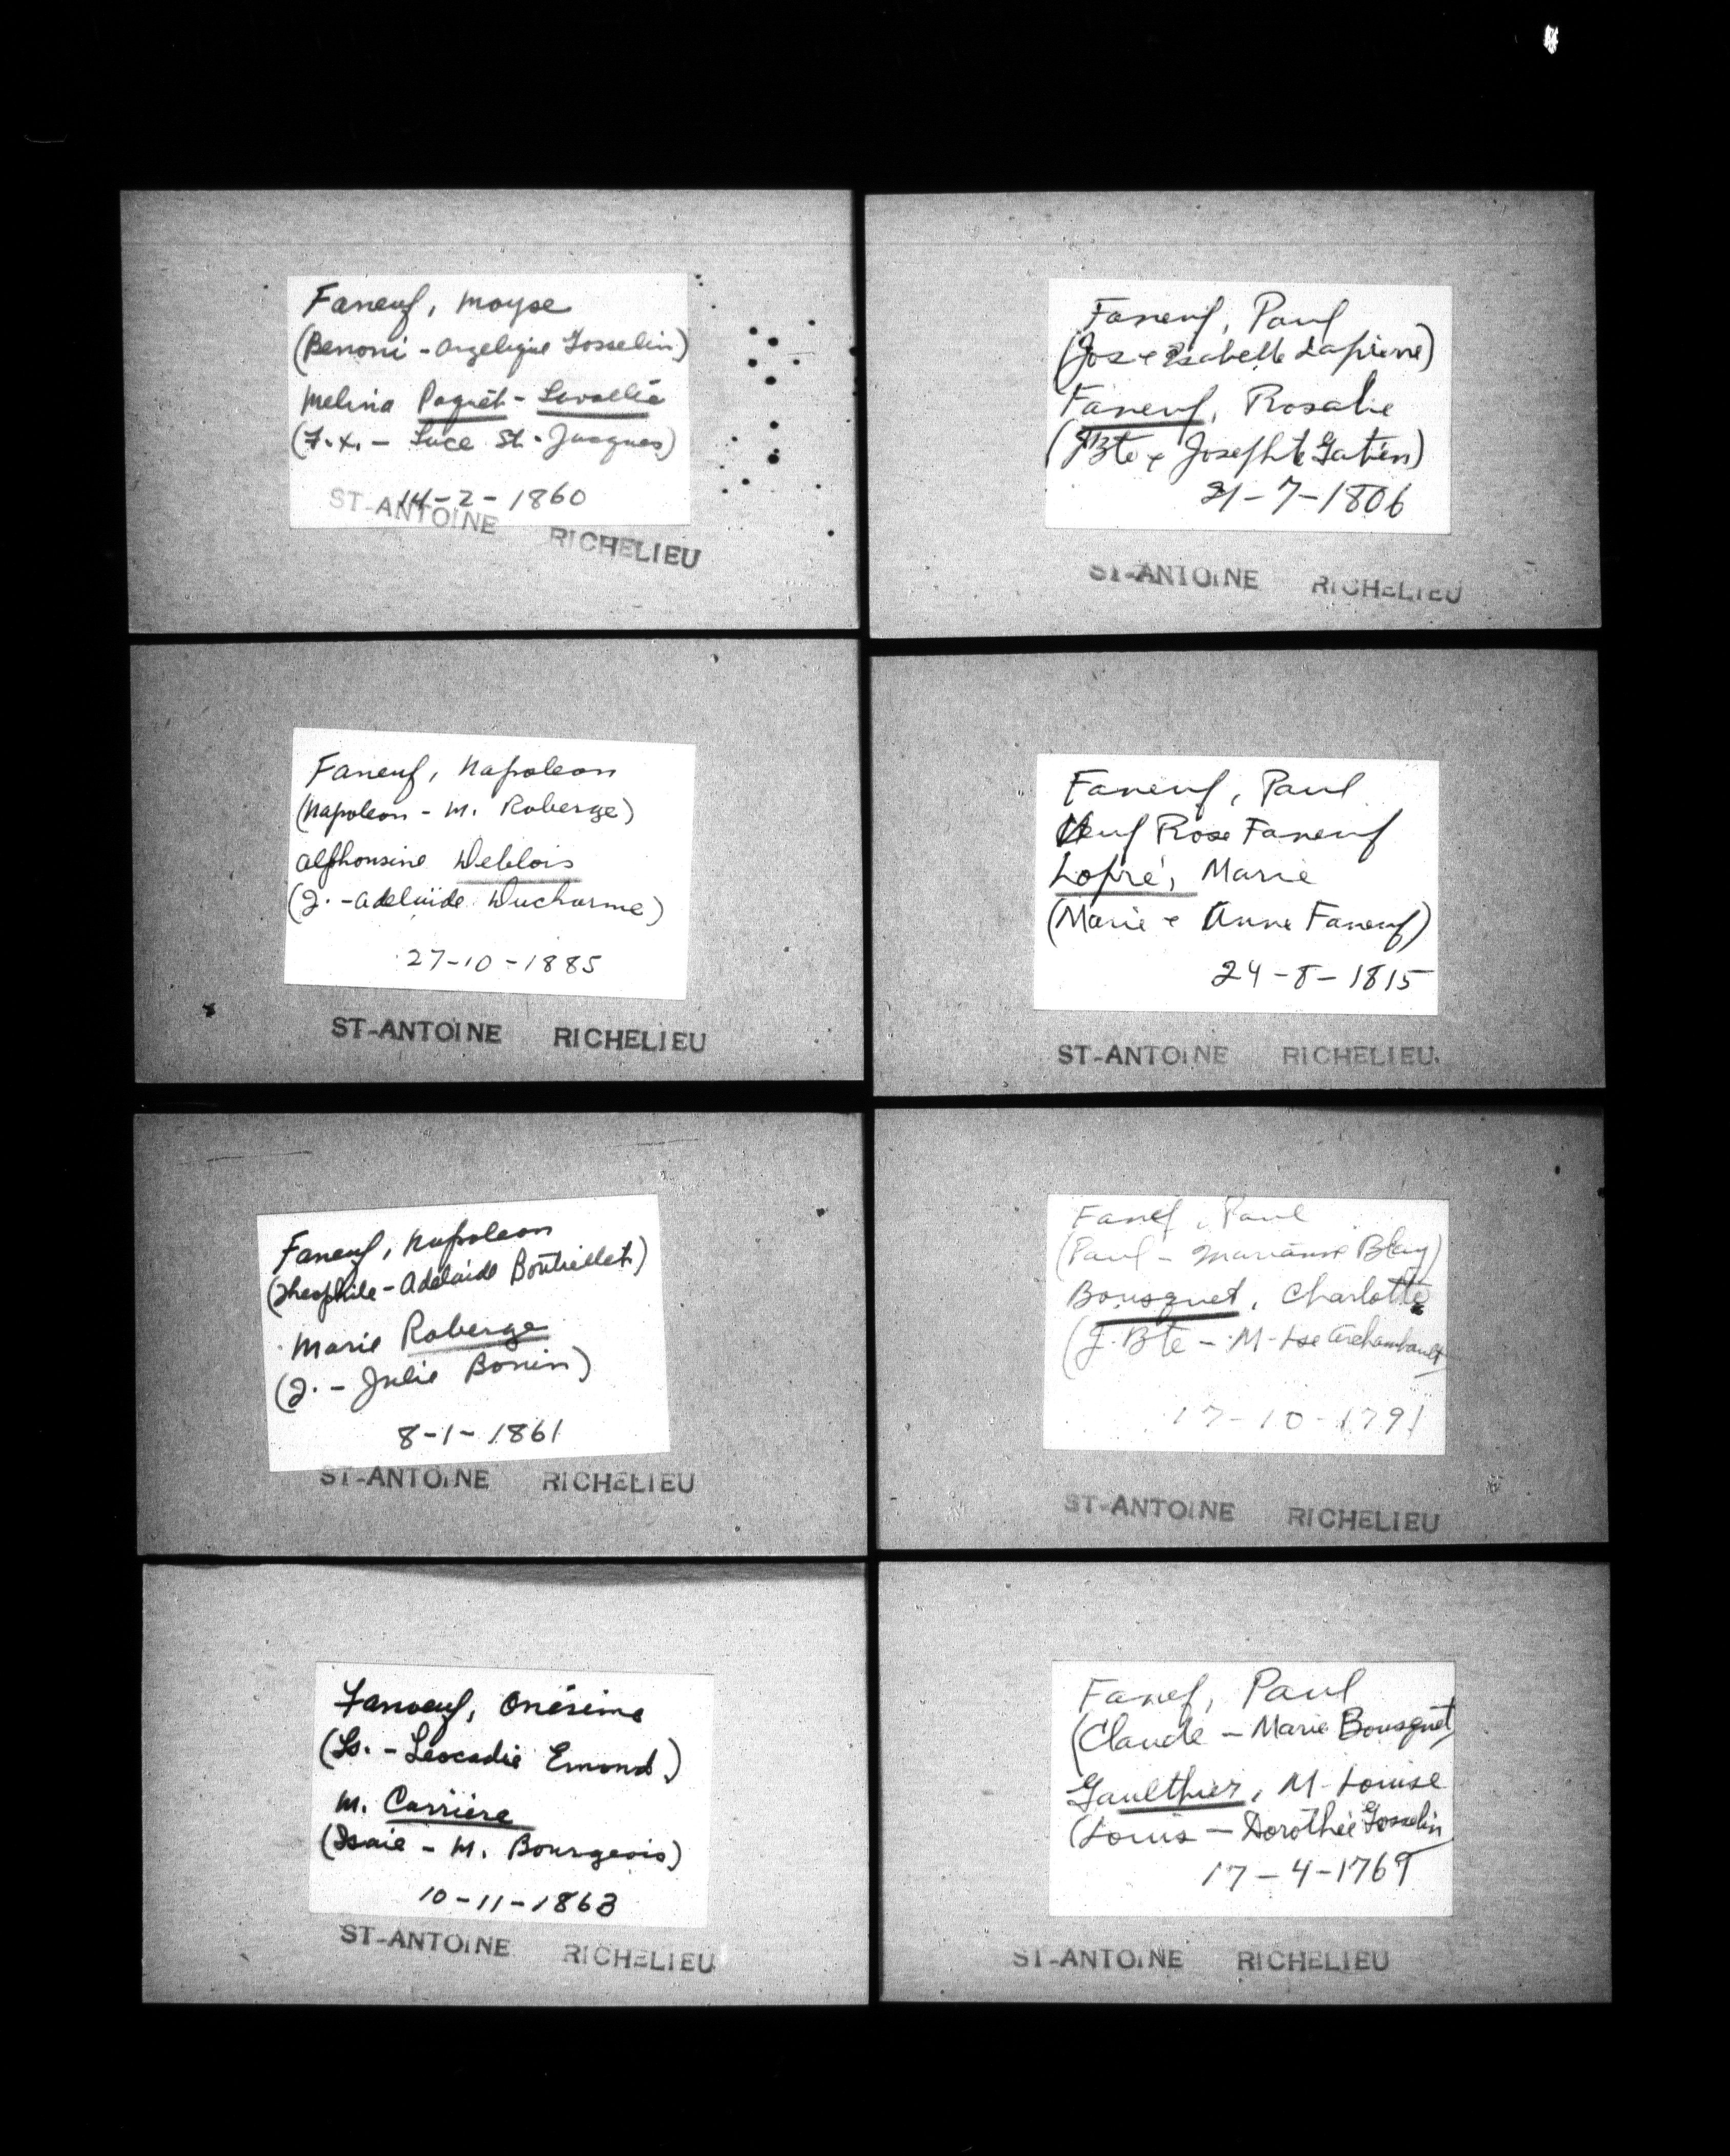 Faneuf, Moyse
(Benoni - Angelique Gosselin)
Melina Paquét - Lavallée
(F.X. - Luce St-Jacques)
14-2-1860
ST-ANTOINE RICHELIEU
Faneuf, Napoleon
(Napoleon - M. Roberge)
Alphonsine Deblois
(J. - Adelaïde Ducharme)
27-10-1885
ST-ANTOINE RICHELIEU
Faneuf, Napoleon
(Theophile - Adélaïde Boutiellet)
Marie Roberge
(J. - Julie Bonin)
8-1-1861
ST-ANTOINE RICHELIEU
Fanoeuf, Onésime
(Ls. - Léocadie Emond)
M. Carrière
(Isaie - M. Bourgeois)
10-11-1863
ST-ANTOINE RICHELIEU
Faneuf, Paul
(Jos & Isabelle Lapierre)
Faneuf, Rosalie
(JBte & Josephte Gatien)
21-7-1806
ST-ANTOINE RICHELIEU
Faneuf, Paul
Veuf Rose Faneuf
Dopré, Marie
(Marie & Anne Faneuf)
24-8-1815
ST-ANTOINE RICHELIEU
Fanef, Paul
(Paul - Marianne Blay)
Bousquet, Charlotte
(J. Bte - M-Lse Archambault)
17-10-1791
ST-ANTOINE RICHELIEU
Fanef, Paul
(Claude - Marie Bousquet)
Gaulthier, M-Louise
(Louis - Dorothée Gosselin)
17-4-1769
ST-ANTOINE RICHELIEU